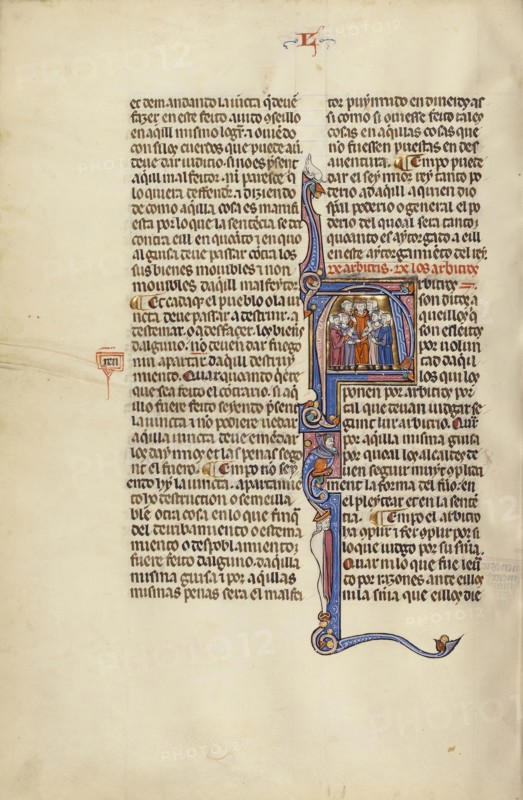 L
et demandando la iuncta q̃ deue
fazer en este feito. ayuto q̃seillo
en aq̃ill mismo logar. ⁊ ouiẽdo
con sillos cuerdos que puede
deue dar iudicio. si no es pñsent
aquill malfeitor. ni paresce q̃
lo quiera deffender. ⁊ diziendo
de como aq̃lla cosa es manifi
esta por lo que la sentẽcia se da
contra eill en quanto ⁊ en quo
alguisa deue passar cõtra los
sus bienes mouibles ⁊ non
mouibles daq̃ill malfeitor.
Et cada q̃ el pueblo o la iũ
cta deue passar a destruir. a
desfemar. o a desfazer. los biens
dalguno. no deuen dar fuego
nin apartar. daq̃ill destruy
miento. Quar quanto q̃ere
que sea feito el cõtrario. si aq̃
illo fuere feito seyendo pñsent
la iuncta ⁊ no podiere uedar
aq̃illa iuncta deue emẽdar
los daynnos et las penas segõ
nt el fuero. Empo no sey
endo hy la iuncta. apartamiẽ
to. o destruction o semeilla
ble otra cosa en lo que finq̃
del derribamiento o estema
miento o despoblamiento;
fuere feito dalguno. daq̃illa
misma guisa ⁊ por aq̃illas
mismas penas sera el malfei
tor puynnido en dineros as
si como si ouiesse feito tales
cosas en aquillas cosas que
no fuessen puestas en des
auentura. Empo puede
dar el seynnor rey tanto po
derio ad aquill a quien dio
spãl poderio o general. el po
derio del qual sera tanto;
quoanto es atorgado a eill
en este atorgamiẽto del rey.
De arbitris. De los arbitros
Arbitros
son ditos a
queillos q̃
son esleitos
por uolun
tad daqui
los qui los
ponen por arbitros por
tal que deuan iudgar se
gunt lur arbitrio. Quar
por aq̃illa misma guisa
por quoal los alcaldes de
uen seguir muyt cõplida
ment la forma del fuero en
el pleytear et en la sentẽ
cia. Empo el arbitro
ha cõplir ⁊ fer cõplir por si
lo que iudgo por su sñia.
Quar ni lo que fue feito
to por razones ante eillos
ni la sñia que eillos die
PHOTO12